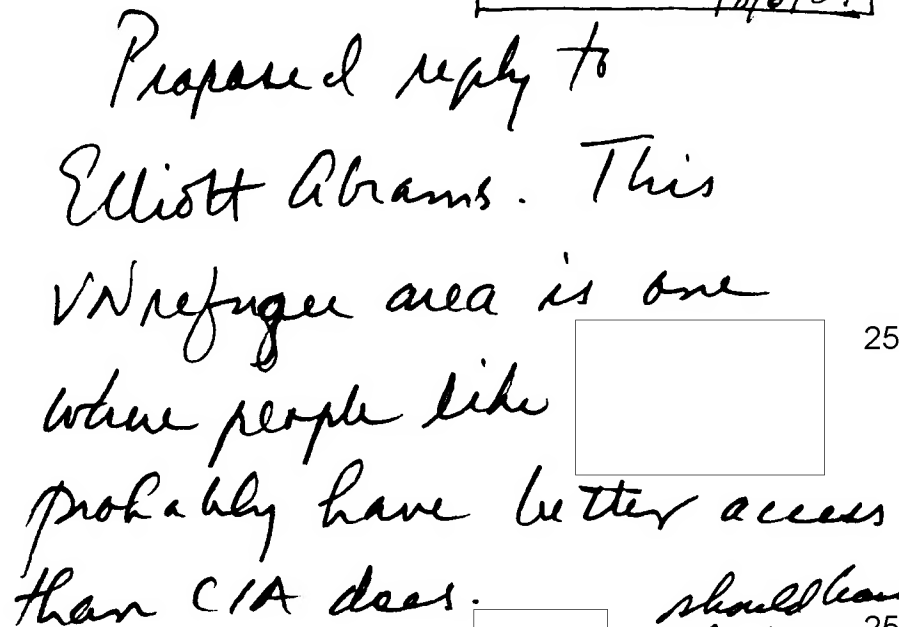 Proposed reply to
Elliott Abrams. This
VN refugee area is one
25
where people like
probably have better access
than CIA does.
should
25